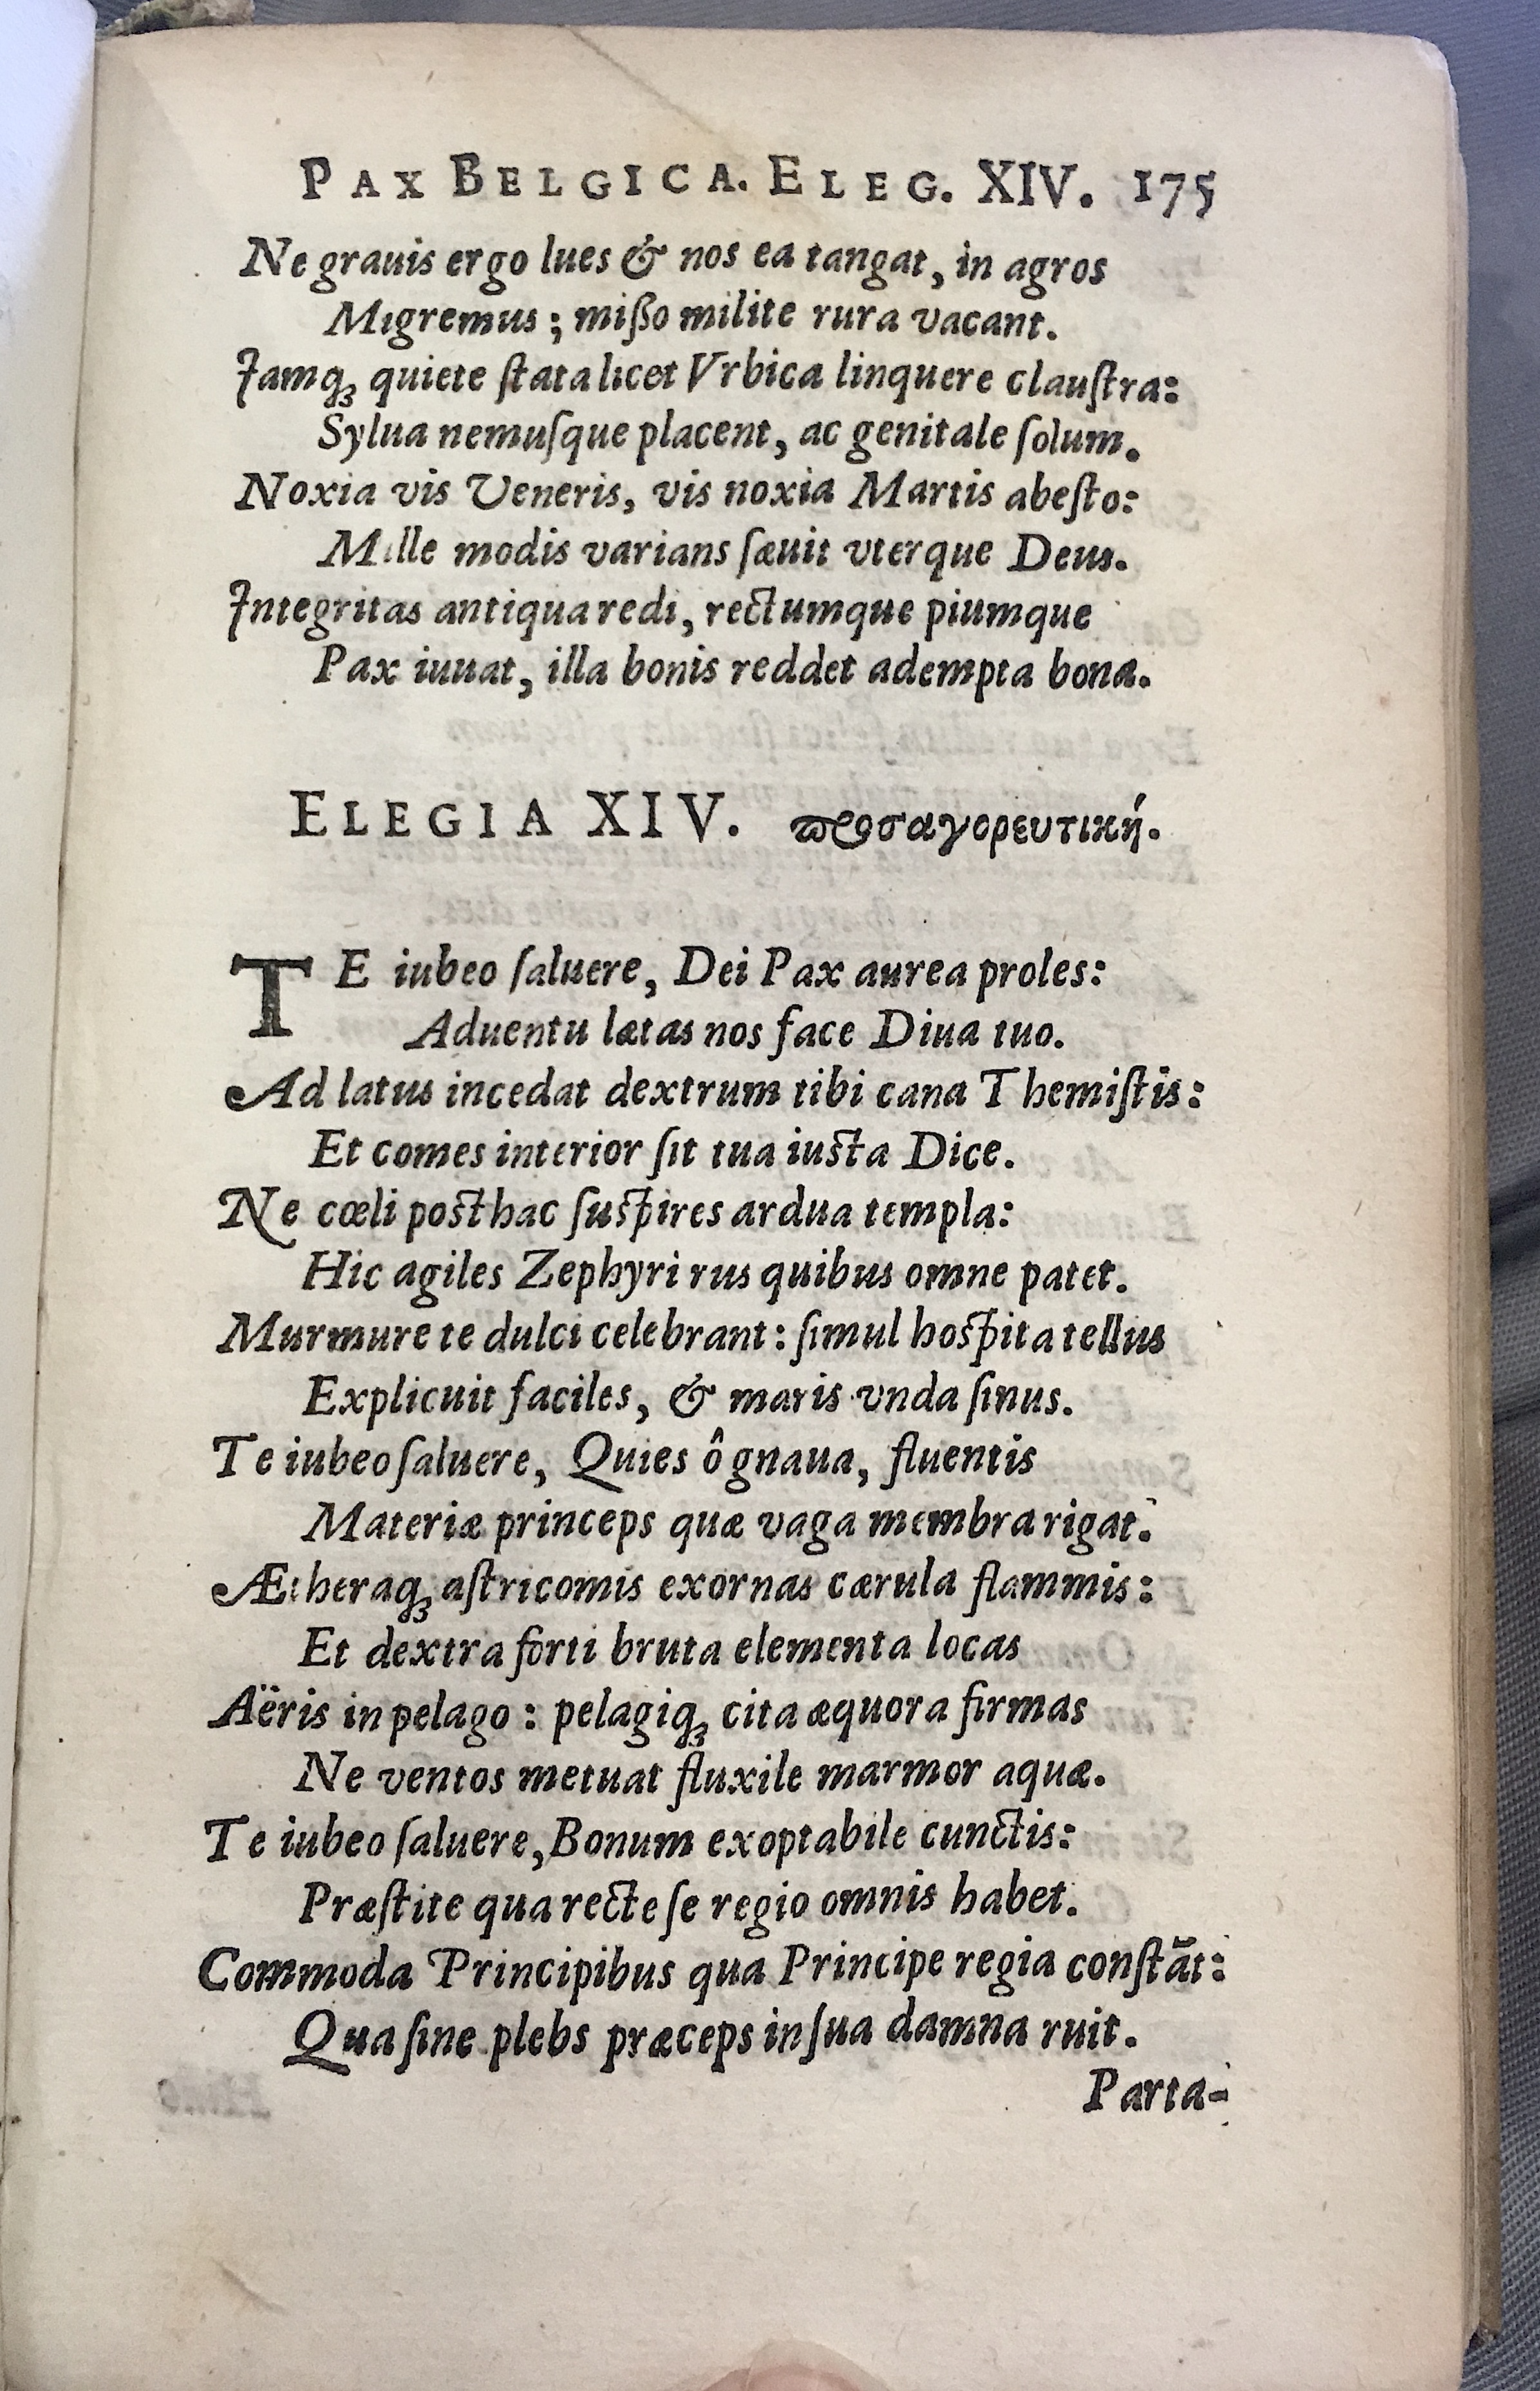 PAX BELGICA. ELEG. XIV. 175
Ne grauis ergo lues & nos ea tangat, in agros
Migremus; mißo milite rura vacant.
Jamqꝫ quiete ſtata licet Vrbica linquere clauſtra:
Sylua nemuſque placent, ac genitale ſolum.
Noxia vis Veneris, vis noxia Martis abeſto:
Mille modis varians ſæuit vterque Deus.
Integritas antiqua redi, rectumque piumque
Pax iuuat, illa bonis reddet adempta bona.
ELEGIA XIV. προσαγορευτική.
TE iubeo ſaluere, Dei Pax aurea proles:
Aduentu lætas nos face Diua tuo.
Ad latus incedat dextrum tibi cana Themiſtis:
Et comes interior ſit tua iusta Dice.
Ne cœli posthac ſuspires ardua templa:
Hic agiles Zephyri rus quibus omne patet.
Murmure te dulci celebrant: ſimul hospita tellus
Explicuit faciles, & maris vnda ſinus.
Te iubeo ſaluere, Quies ô gnaua, fluentis
Materiæ princeps quæ vaga membra rigat.
Ætheraqꝫ aſtricomis exornas cærula flammis:
Et dextra forti bruta elementa locas
Aëris in pelago: pelagiqꝫ cita æquora firmas
Ne ventos metuat fluxile marmor aquæ.
Te iubeo ſaluere, Bonum exoptabile cunctis:
Præſtite qua recte ſe regio omnis habet.
Commoda Principibus qua Principe regia conſtāt:
Qua ſine plebs præceps in ſua damna ruit.
Parta-